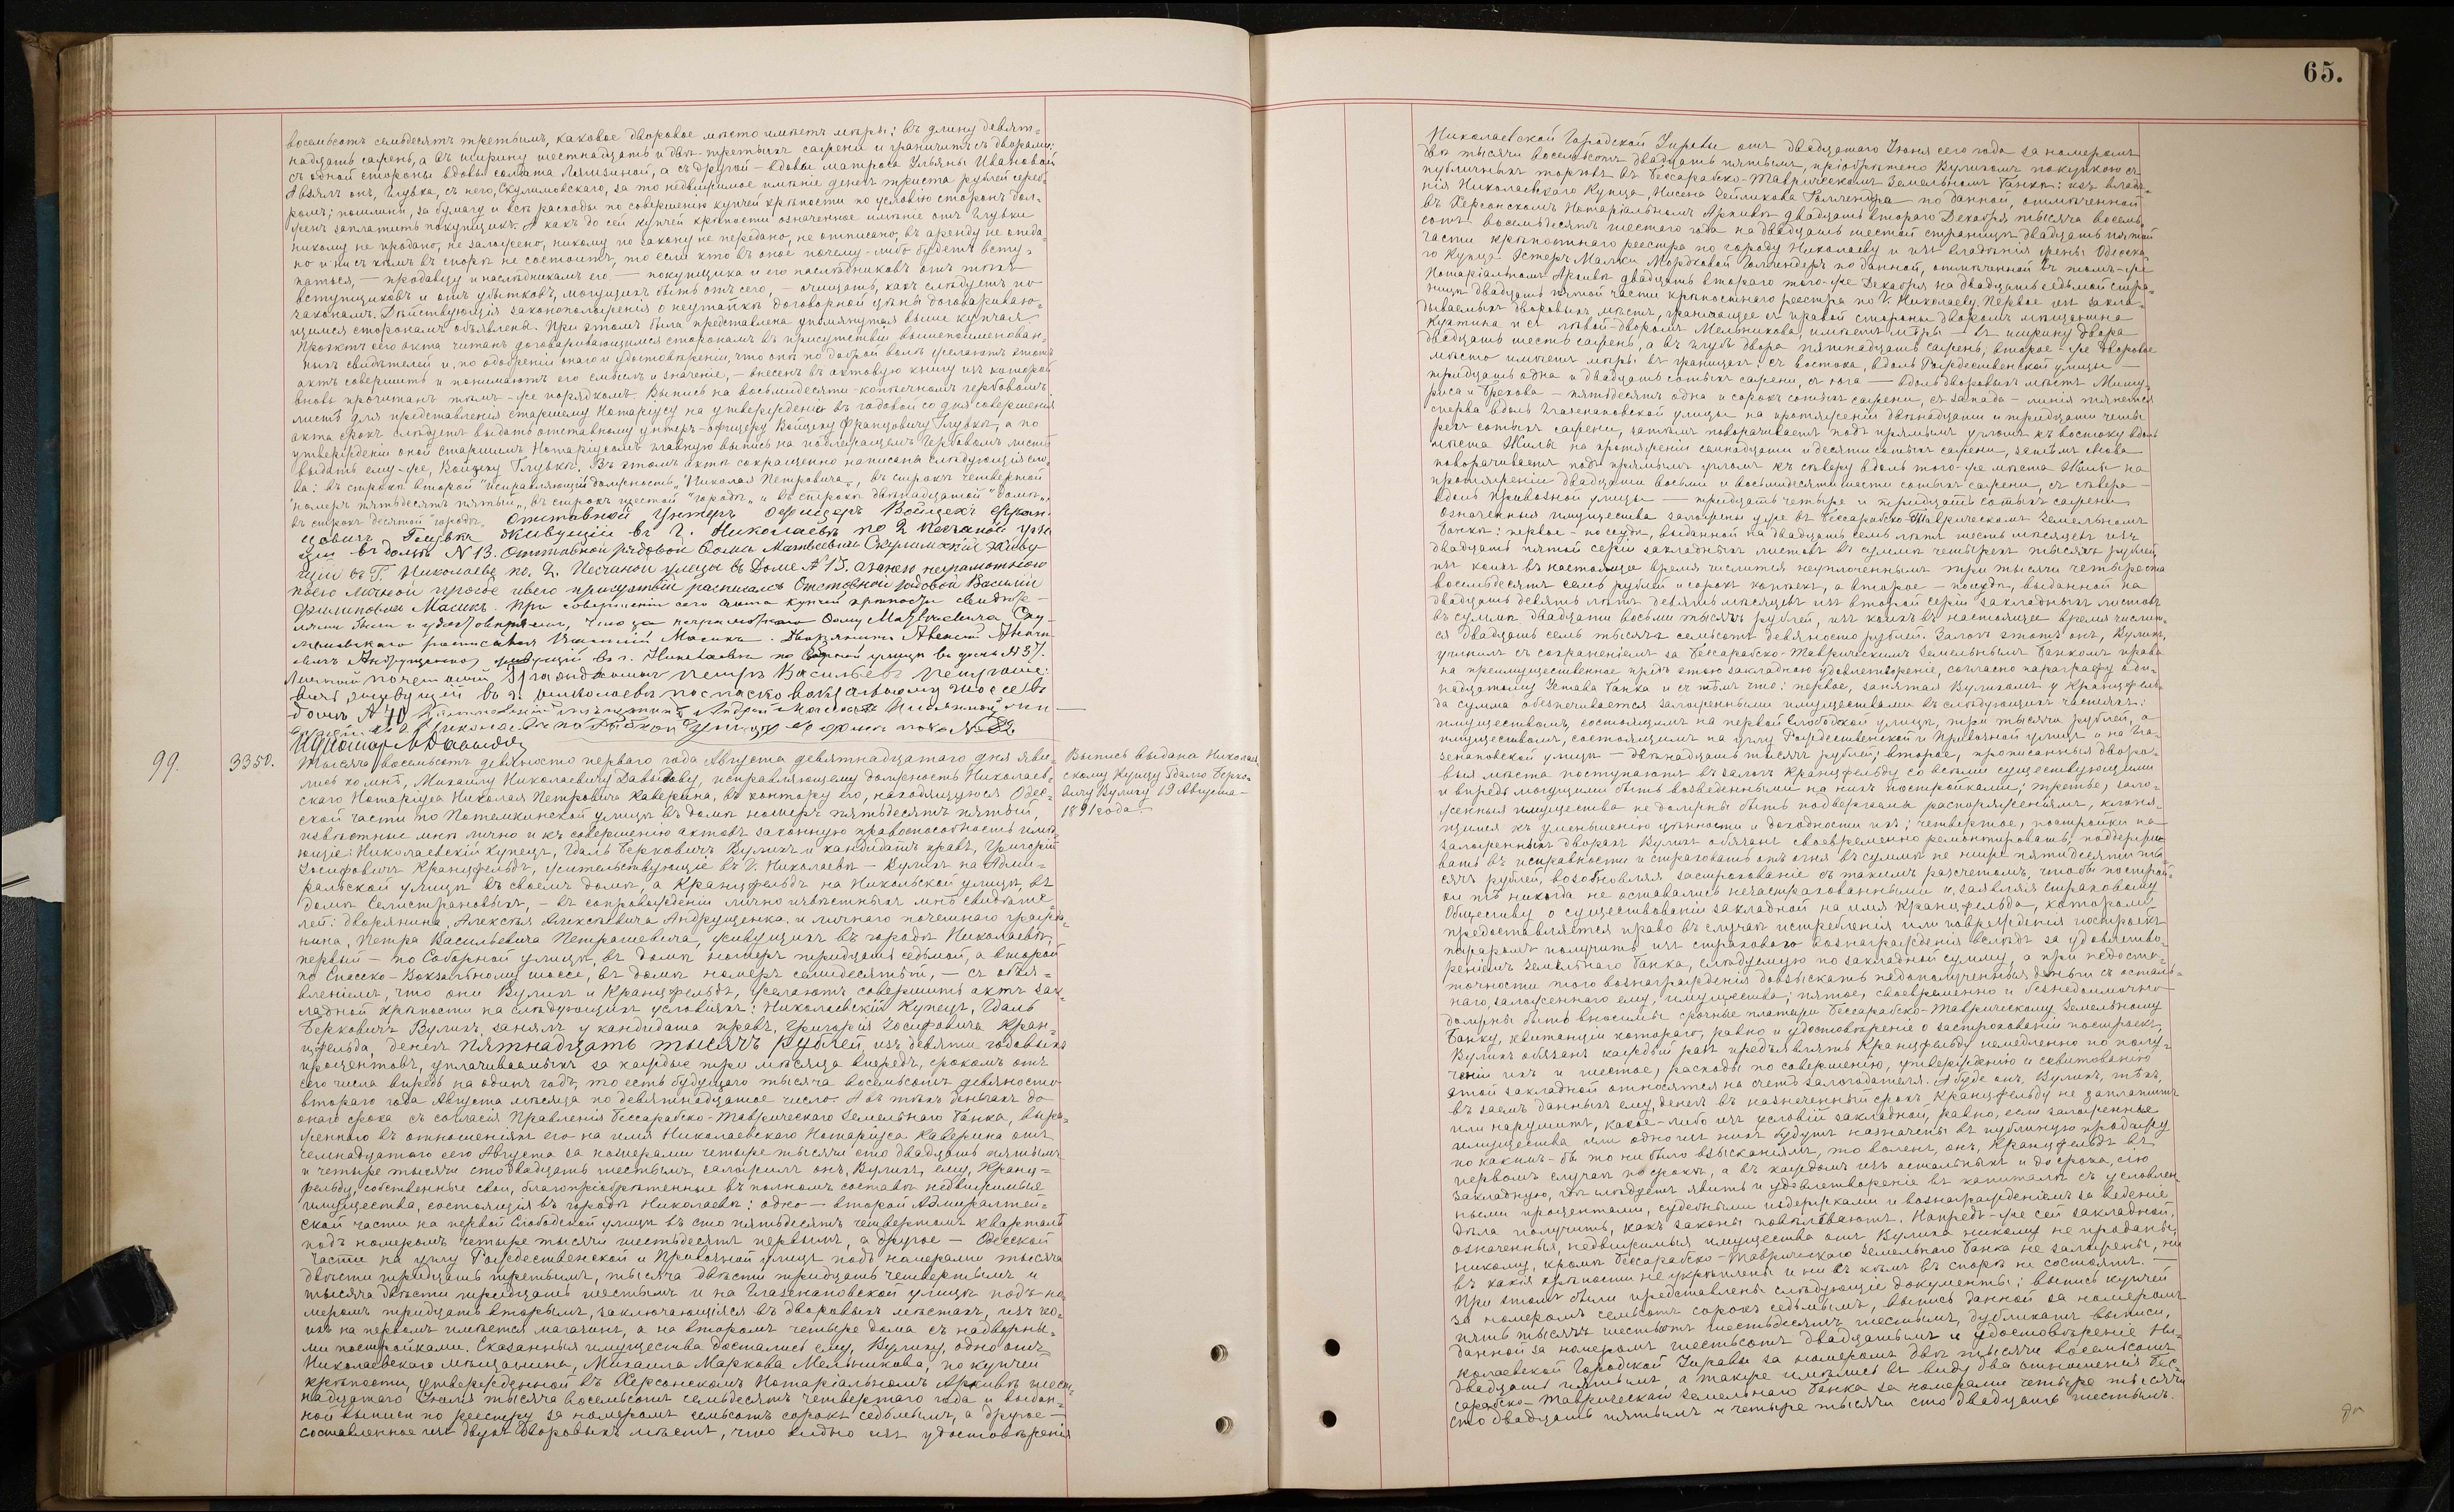 восемьсотъ семьдесятъ третьимъ, каковое дворовое мѣсто имѣетъ мѣры: въ длину девят=
надцать сажень, а въ ширину шестнадцать и двѣ-третьихъ сажени и граничитъ съ дворами:
съ одной стороны вдовы солдата Лямзиной, а съ другой - вдовы матроса Ульяны Ивановой
А взялъ онъ, Глувка, съ него, Скулимовскаго, за то недвижимое имѣніе денегъ триста рублей сереб=
ромъ; пошлины, за бумагу и всѣ расходы по совершенію купчей крѣпости по условію сторонъ дол=
женъ заплатить покупщикъ. А какъ до сей купчей крѣпости означенное имѣніе отъ Глувки
никому не продано, не заложено, никому по закону не передано, не отписано, въ аренду не отда=
но и ни съ кѣмъ въ спорѣ не состоитъ, то если кто въ оное почему-либо будетъ всту=
паться, — продавцу и наслѣдникамъ его — покупщика и его наслѣдниковъ отъ тѣхъ
вступщиковъ и отъ убытковъ, могущихъ быть отъ сего, — очищать, какъ слѣдуетъ по
законамъ. Дѣйствующія законоположенія о неутайкѣ договорной цѣны договариваю=
щимся сторонамъ объявлены. При этомъ была представлена упомянутая выше купчая
Проэктъ сего акта читанъ договаривающимся сторонамъ въ присутствіи вышепоименован=
ныхъ свидѣтелей и, по одобреніи онаго и удостовѣреніи, что они по доброй волѣ желаютъ этотъ
актъ совершить и понимаютъ его смыслъ и значеніе, — внесенъ въ актовую книгу изъ которой
вновь прочитанъ тѣмъ-же порядкомъ. Выпись на восьмидесяти-копѣечномъ гербовомъ
листѣ для представленія старшему Нотаріусу на утвержденіе въ годовой со дня совершенія
акта срокъ слѣдуетъ выдать отставному унтеръ-офицеру Войцеху Францовичу Глувкѣ, а по
утвержденіи оной старшимъ Нотаріусомъ главную выпись на подлежащемъ гербовомъ листѣ
выдать ему-же, Войцеху Глувкѣ. Въ этомъ актѣ сокращенно написаны слѣдующія сло=
ва: въ строкѣ второй "исправляющій должность" "Николая Петровича", въ строкѣ четвертой
"номеръ пятьдесятъ пятый", въ строкѣ шестой "городѣ" и въ строкѣ двѣнадцатой "домѣ",
въ строкѣ десятой "городѣ". Отставной Унтеръ Офицеръ Войцехъ Фран
цовичъ Глувка Живущій въ г. Николаевѣ по 2 песчаной ули
цы въ домѣ N 13. Отставной рядовой Фома Матвѣевичъ Скулимовскій живу
щій въ Г. Николаевѣ по 2. Песчаной улицы въ Домѣ N 13. а за него неграмотнаго
по его личной прозбѣ и въ его присутствіи расписался Отставной рядовой Василій
Филиповичъ Масикъ. При совершеніи сего акта купчей крѣпости свидѣте-
лями были и удостовѣряемъ, что за неграмотнаго Фому Матвѣевича Ску
лимовскаго росписался Василій Масикъ. Дворянинъ Алексѣй Алексѣ
евичъ Андрущенко, живущій въ г. Николаевѣ по Соборной улицѣ въ домѣ N 37.
Личный почетный Гражданинъ Петръ Васильевъ Петраше
вичъ, живущій въ г. Николаевѣ по спаско вокзальному шоссе въ
домѣ N 70
Нотаріусъ М Давыдовъ
99.
3350.
Тысяча восемьсотъ девяносто перваго года Августа девятнадцатаго дня яви=
лись ко мнѣ, Михаилу Николаевичу Давыдову, исправляющему должность Николаев=
скаго Нотаріуса Николая Петровича Каверина, въ контору его, находящуюся Одес=
ской части по Потемкинской улицѣ въ домѣ номеръ пятьдесятъ пятый,
извѣстные мнѣ лично и къ совершенію актовъ законную правоспособность имѣ=
ющіе: Николаевскій Купецъ, Гдаль Берковичъ Вулихъ и кандидатъ правъ, Григорій
Іосифовичъ Кранцфельдъ, жительствующіе въ Г. Николаевѣ — Вулихъ на Адми=
ральской улицѣ въ своемъ домѣ, а Кранцфельдъ на Никольской улицѣ, въ
домѣ Селистрановыхъ, — въ сопровожденіи лично извѣстныхъ мнѣ свидѣте=
лей: дворянина, Алексѣя Алексѣевича Андрущенка, и личнаго почетнаго гражда=
нина, Петра Васильевича Петрашевича, живущихъ въ городѣ Николаевѣ,
первый — по Соборной улицѣ, въ домѣ номеръ тридцать седьмой, а второй
по Спасско-Вокзальному шоссе, въ домѣ номеръ семидесятый, — съ объя=
вленіемъ, что они Вулихъ и Кранцфельдъ, желаютъ совершить актъ зак=
ладной крѣпости на слѣдующихъ условіяхъ: Николаевскій Купецъ, Гдаль
Берковичъ Вулихъ, занялъ у кандидата правъ, Григорія Іосифовича Кран=
цфельда, денегъ пятнадцать тысячъ рублей изъ девяти годовыхъ
процентовъ, уплачиваемыхъ за каждые три мѣсяца впередъ, срокомъ отъ
сего числа впредь на одинъ годъ, то есть будущаго тысяча восемьсотъ девяносто
втораго года Августа мѣсяца по девятнадцатое число. А въ тѣхъ деньгахъ до
онаго срока съ согласія Правленія Бессарабско-Таврическаго Земельнаго Банка, выра=
женнаго въ отношеніяхъ его на имя Николаевскаго Нотаріуса Каверина отъ
семнадцатаго сего Августа за номерами четыре тысячи сто двадцать пятымъ
и четыре тысячи сто двадцать шестымъ, заложилъ онъ, Вулихъ, ему, Кранц=
фельду, собственные свои, благопріобрѣтенные въ полномъ составѣ недвижимые
имущества, состоящія въ городѣ Николаевѣ: одно — второй Адмиралтей=
ской части на первой Слободской улицѣ въ сто пятьдесятъ четвертомъ кварталѣ
подъ номеромъ четыре тысячи шестьдесятъ первымъ, а другое — Одесской
части на углу Рождественской и Привозной улицъ подъ номерами тысяча
двѣсти тридцать третьимъ, тысяча двѣсти тридцать четвертымъ и
тысяча двѣсти тридцать шестымъ и на Глазенаповской улицѣ подъ но=
меромъ тридцать вторымъ, заключающіяся въ дворовыхъ мѣстахъ, изъ ко=
ихъ на первомъ имѣется магазинъ, а на второмъ четыре дома съ надворны=
ми постройками. Сказанныя имущества достались ему, Вулиху, одно отъ
Николаевскаго мѣщанина, Михаила Маркова Мельникова, по купчей
крѣпости, утвержденной въ Херсонскомъ Нотаріальномъ Архивѣ шест=
надцатаго Іюля тысяча восемьсотъ семьдесятъ четвертаго года и выдан=
ной выписи по реестру за номеромъ семьсотъ сорокъ седьмымъ, а другое —
составленное изъ двухъ дворовыхъ мѣстъ, что видно изъ удостовѣренія
Выпись выдана Николаев
скому Купцу Гдалю Берко=
вичу Вулиху 19 Августа —
1891 года.
65.
Николаевской Городской Управы отъ двадцатаго Іюня сего года за номеромъ
двѣ тысячи восемьсотъ двадцать пятымъ, пріобрѣтено Вулихомъ покупкою съ
публичныхъ торговъ въ Бессарабско-Таврическомъ Земельномъ Банкѣ: изъ владѣ=
нія Николаевскаго Купца, Нисена Зейликова Гольденда по данной, отмѣченной
въ Херсонскомъ Нотаріальномъ Архивѣ двадцать втораго Декабря тысяча восемь=
сотъ восемьдесятъ шестого года на двадцать шестой страницѣ двадцать пятой
части крѣпостнаго реестра по городу Николаеву и изъ владѣнія жены Одесска=
го купца Эстеръ-Малки Мордковой по данной, отмѣченной въ томъ-же
Нотаріальномъ Архивѣ двадцать втораго того-же Декабря на двадцать седьмой стра=
ницѣ двадцать пятой части крѣпостнаго реестра по Г. Николаеву. Первое изъ закла=
дываемыхъ дворовыхъ мѣстъ, граничащее съ правой стороны дворомъ мѣщанина
Кухтина и съ лѣвой - дворомъ Мельникова, имѣетъ мѣры — въ ширину двора
двадцать шесть сажень, а въ глубь двора пятнадцать сажень, второе-же дворовое
мѣсто имѣетъ мѣры въ границахъ: съ востока, вдоль Рождественской улицы —
тридцать одна и двадцать сотыхъ сажени, съ юга — вдоль дворовыхъ мѣстъ
и Грекова — пятьдесятъ одна и сорокъ сотыхъ сажени, съ запада — линія тянется
сперва вдоль Глазенаповской улицы на протяженіи двѣнадцати и тридцати четы
рехъ сотыхъ сажени, затѣмъ поворачиваетъ подъ прямымъ угломъ къ востоку вдоль
мѣста Жилы на протяженіи семнадцати и десяти сотыхъ сажени, затѣмъ снова
поворачиваетъ подъ прямымъ угломъ къ сѣверу вдоль того-же мѣста Жилы на
протяженіи двадцати восьми и восьмидесяти шести сотыхъ сажени, съ сѣвера —
вдоль Привозной улицы — тридцать четыре и тридцать сотыхъ сажени
Означенныя имущества заложены уже въ Бессарабско-Таврическомъ Земельномъ
Банкѣ: первое - по ссудѣ, выданной на двадцать семь лѣтъ шесть мѣсяцевъ изъ
двадцать пятой серіи закладныхъ листовъ въ суммѣ четырехъ тысячъ рублей,
изъ коихъ въ настоящее время числится неуплоченнымъ три тысячи четыреста
восемьдесятъ семь рублей и сорокъ копѣекъ, а второе — по ссудѣ, выданной на
двадцать девять лѣтъ девять мѣсяцевъ изъ второй серіи закладныхъ листовъ
въ суммѣ двадцати восьми тысячъ рублей, изъ коихъ въ настоящее время числит=
ся двадцать семь тысячъ семьсотъ девяносто рублей. Залогъ этотъ онъ, Вулихъ,
учинилъ съ сохраненіемъ за Бессарабско-Таврическимъ Земельнымъ Банкомъ права
на преимущественное предъ этою закладною удовлетвореніе, согласно параграфу оди=
надцатому Устава Банка и съ тѣмъ что: первое, занятая Вулихомъ у Кранцфель=
да сумма обезпечивается заложенными имуществами въ слѣдующихъ частяхъ:
имуществомъ, состоящимъ на первой Слободской улицѣ, три тысячи рублей, а
имуществомъ, состоящимъ на углу Рождественской и Привозной улицъ и на Гла=
зенаповской улицѣ — двѣнадцать тысячъ рублей; второе, прописанныя дворо=
выя мѣста поступаютъ въ залогъ Кранцфельду со всѣми существующими
и впредь могущими быть возведенными на нихъ постройками; третье, зало=
женныя имущества не должны быть подвергаемы распоряженіямъ, клоня=
щимся къ уменьшенію цѣнности и доходности ихъ; четвертое, постройки на
заложенныхъ дворахъ Вулихъ обязанъ своевременно ремонтировать, поддержи
вать въ исправности и страховать отъ огня въ суммѣ не ниже пятидесяти ты
сячъ рублей, возобновляя застрахованіе съ такимъ разсчетомъ, чтобы построй=
ки тѣ никогда не оставались незастрахованными и, заявляя Страховому
Обществу о существованіи закладной на имя Кранцфельда, которому
предоставляется право въ случаѣ истребленія или поврежденія построекъ
пожаромъ получить изъ страховаго вознагражденія вслѣдъ за удовлетво=
реніемъ Земельнаго Банка, слѣдуемую по закладной сумму, а при недоста=
точности того вознагражденія довзыскать недополученныя деньги съ осталь=
наго, заложеннаго ему, имущества; пятое, своевременно и безнедоимочно
должны быть вносимы срочные платежи Бессарабско-Таврическому Земельному
Банку, квитанціи котораго, равно и удостовѣреніе о застрахованіи построекъ,
Вулихъ обязанъ каждый разъ предъявлять Кранцфельду немедленно по полу=
ченіи ихъ и шестое, расходы по совершенію, утвержденію и сквитованію
этой закладной относятся на счетъ залогодателя. А буде онъ, Вулихъ, тѣхъ,
въ заемъ данныхъ ему, денегъ въ назначенный срокъ Кранцфельду не заплатитъ
или нарушитъ, какое-либо изъ условій закладной, равно, если заложенные
имущества или одно изъ нихъ будутъ назначены въ публичную продажу
по какимъ-бы то ни было взысканіямъ, то воленъ, онъ, Кранцфельдъ въ
первомъ случаѣ по срокѣ, а въ каждомъ изъ остальныхъ и до срока, сію
закладную, гдѣ слѣдуетъ явить и удовлетвореніе въ капиталѣ съ условлен
ными процентами, судебными издержками и вознагражденіемъ за веденіе
дѣла получить, какъ законы повелѣваютъ. Напредь-же сей закладной,
означенныя, недвижимыя имущества отъ Вулиха никому не проданы,
никому, кромѣ Бессарабско-Таврическаго Земельнаго Банка не заложены, ни
въ какія крѣпости не укрѣплены и ни въ комъ въ спорѣ не состоятъ. —
При этомъ были представлены слѣдующіе документы: выпись купчей
за номеромъ семьсотъ сорокъ седьмымъ, выпись данной за номеромъ
пять тысячъ шестьсотъ шестьдесятъ шестымъ, дубликатъ выписи,
данной за номеромъ шестьсотъ двадцатымъ и удостовѣреніе Ни=
колаевской Городской Управы за номеромъ двѣ тысячи восемьсотъ
двадцать пятымъ, а также имѣлись въ виду два отношенія Бес=
сарабско-Таврическаго Земельнаго Банка за номерами четыре тысячи
сто двадцать пятымъ и четыре тысячи сто двадцать шестымъ.